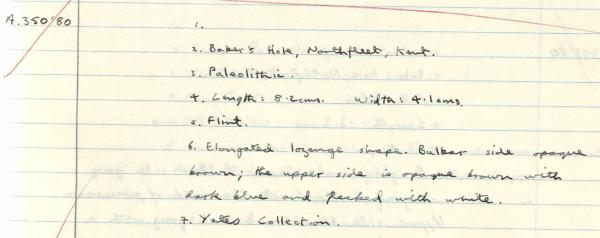 A.350'80
1.
2. Baker's Hole, Northfleet, Kent.
3. Paleolithic.
4. Length: 8.2cms. Width: 4.1cms.
5. Flint.
6. Elongated lozenge shape. Bulbar side opaque
brown; the upper side is opaque brown with
dark blue and flecked with white.
7. Yates Collection.